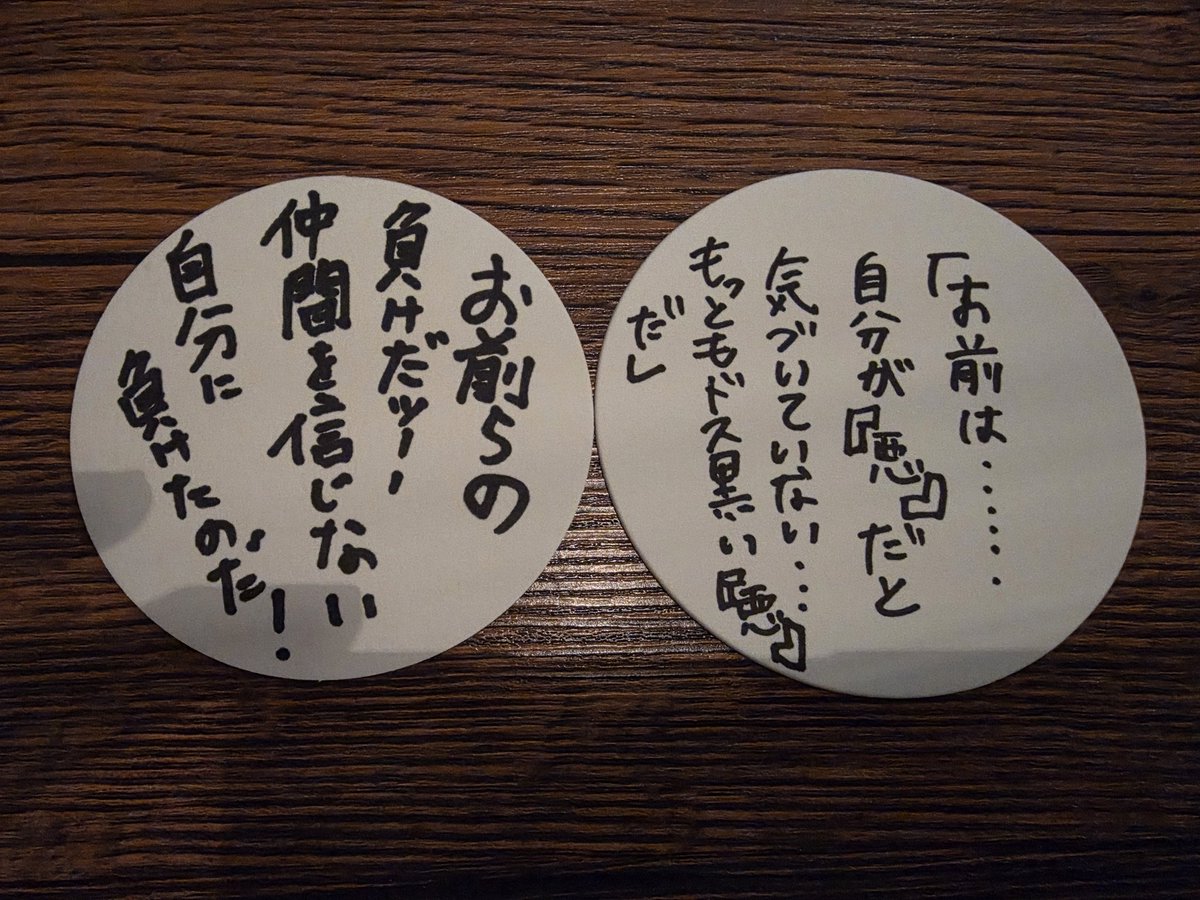 「お前は‥‥‥
自分が『悪』だと
気づいていない‥‥
もっともドス黒い『悪』
だ」
お前らの
負けだッー!
仲間を信じない
自分に
負けたのだ!!